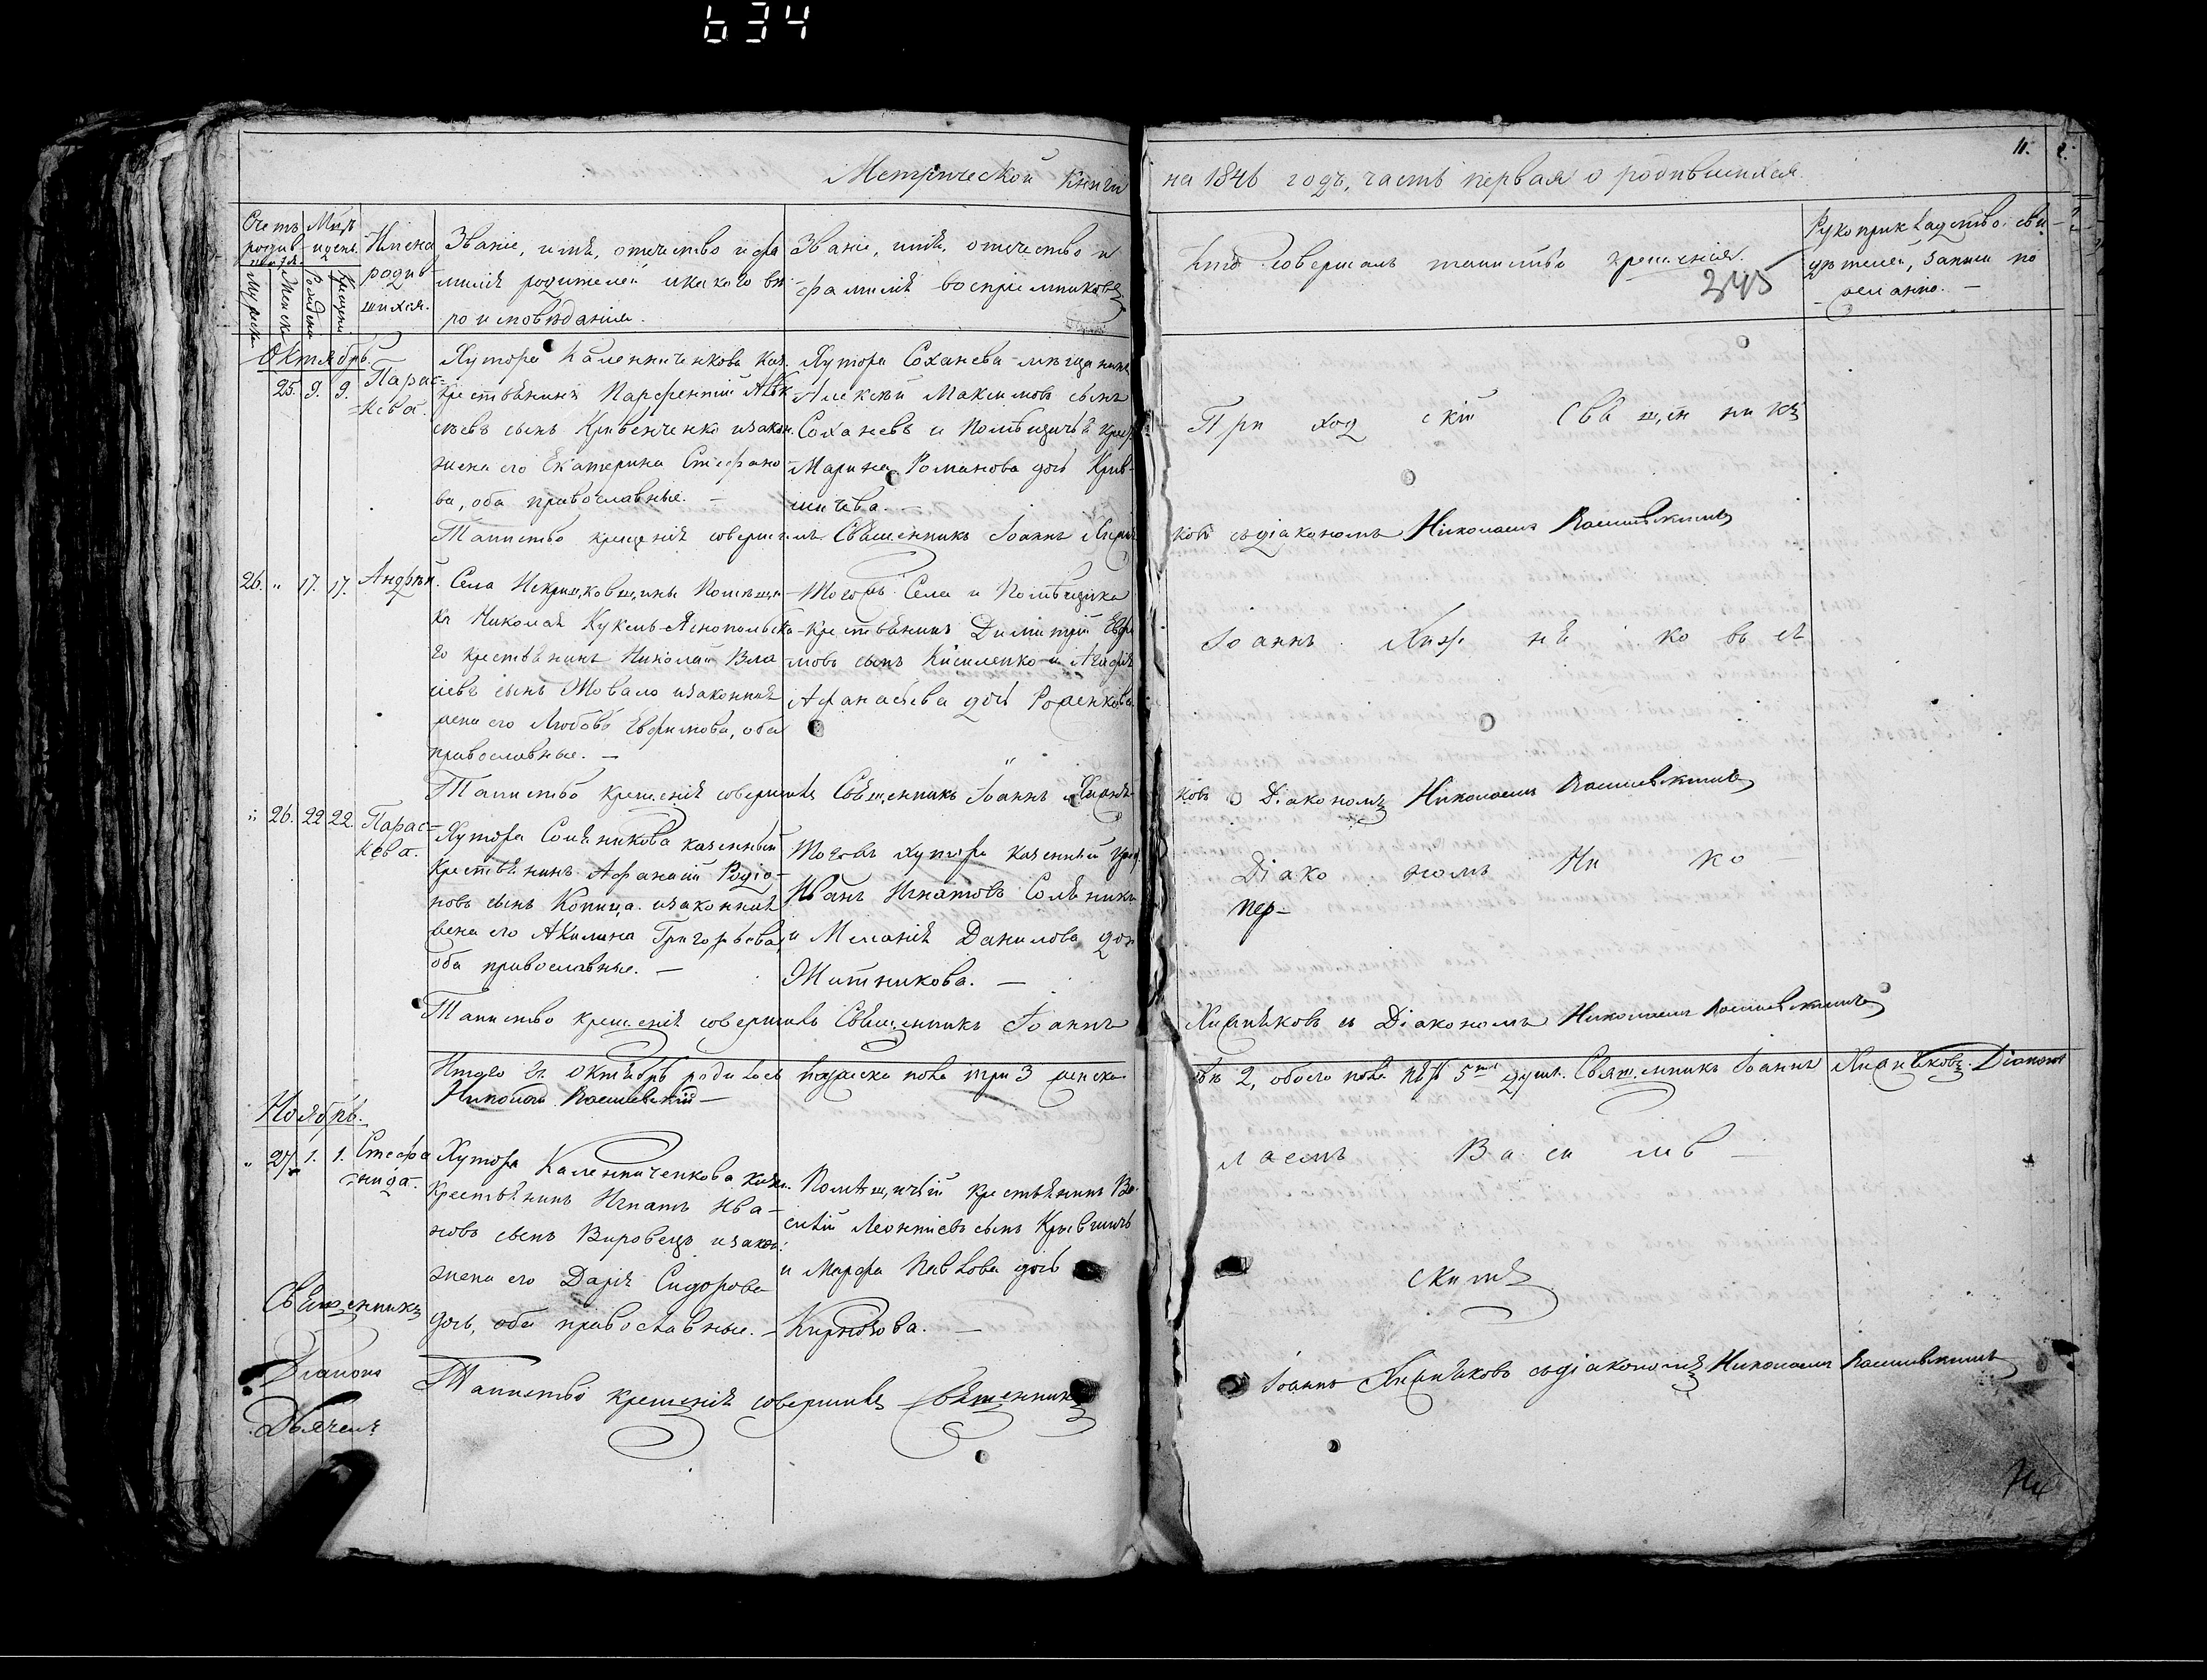 634
Метрической Книги на 1846 годъ, часть первая о родившихся.
11.
Счетъ родив-шихся.
Мужеска
Женска
Мцъ и день.
Рожденія
Крещенія
Имена родив-шихся.
Званіе, имя, отечество и фа
милія родителей и какого вѣ
роисповѣданія.
Званіе, имя, отечество и
фамилія воспріемниковъ
Кто совершалъ таинство крещенія.
345
Рукоприкладство сви-
дѣтелей, записи по
желанію.
Октябрь
25. 9. 9. Парас=
=кева.
Хутора Каленниченкова каз.
крестьянинъ Парфентій Алек
сѣевъ сынъ Кривенченко и закон.
жена его Екатерина Стефано
ва, оба православные. —
Хутора Соханева мѣщанинъ
Алексѣй Максимовъ сынъ
Соханевъ и Помѣщичья крес.
Марина Романова дочь Крив-
шичева.
При ход скій Свя щен никъ
Таинство крещенія совершилъ Священникъ Іоаннъ
ковъ съ діакономъ Николаемъ
26. " 17. 17. Андрей.
Села Некришковщины Помѣщи
ка Николая Кукель-Яснопольска
го крестьянинъ Николай Вла
сіевъ сынъ Товало и законная
жена его Любовь Евфимова, оба
православные. —
Тогожъ Села и Помѣщика
крестьянинъ Димитрій Евфи
мовъ сынъ Кисиленко и Агафія
Афанасьева дочь Роженкова
Іоаннъ Хиж ня ко въ съ
Таинство крещенія совершилъ Священникъ Іоаннъ Хижня
ковъ съ Діакономъ Николаемъ
" 26. 22 22. Парас=
кева.
Хутора Соляникова казенный
крестьянинъ Афанасій Родіо-
новъ сынъ Копица и законная
жена его Акилина Григорьева,
оба православные. —
Тогожъ хутора казенный крес.
Иванъ Игнатовъ Соляникъ
и Меланія Данилова доч
Житникова. —
Діако номъ Ни ко
пер-
Таинство крещенія совершилъ Священникъ Іоаннъ
Хижняковъ съ Діакономъ Николаемъ
Итого въ Октябрѣ родилось мужеска пола три 3 женска
двѣ 2, обоего пола пять 5ть душъ. Священникъ Іоаннъ Хижняковъ. Діаконъ
Николай
Ноябрь.
" 27. 1. 1. Стефа
нида.
Хутора Каленниченкова казен.
крестьянинъ Игнатъ Ива-
новъ сынъ Вировецъ и закон:
жена его Дарія Сидорова
дочь, оба православные. —
Помѣщичій крестьянинъ Ва
силій Леонтіевъ сынъ Крившичъ
и Марфа Павлова дочь
Кирюкова. —
лаемъ Ва си лів —
скимъ
Священникъ
Діаконъ
Дьячекъ
Таинство крещенія совершилъ Священникъ
Іоаннъ Хижняковъ съ діакономъ Николаемъ